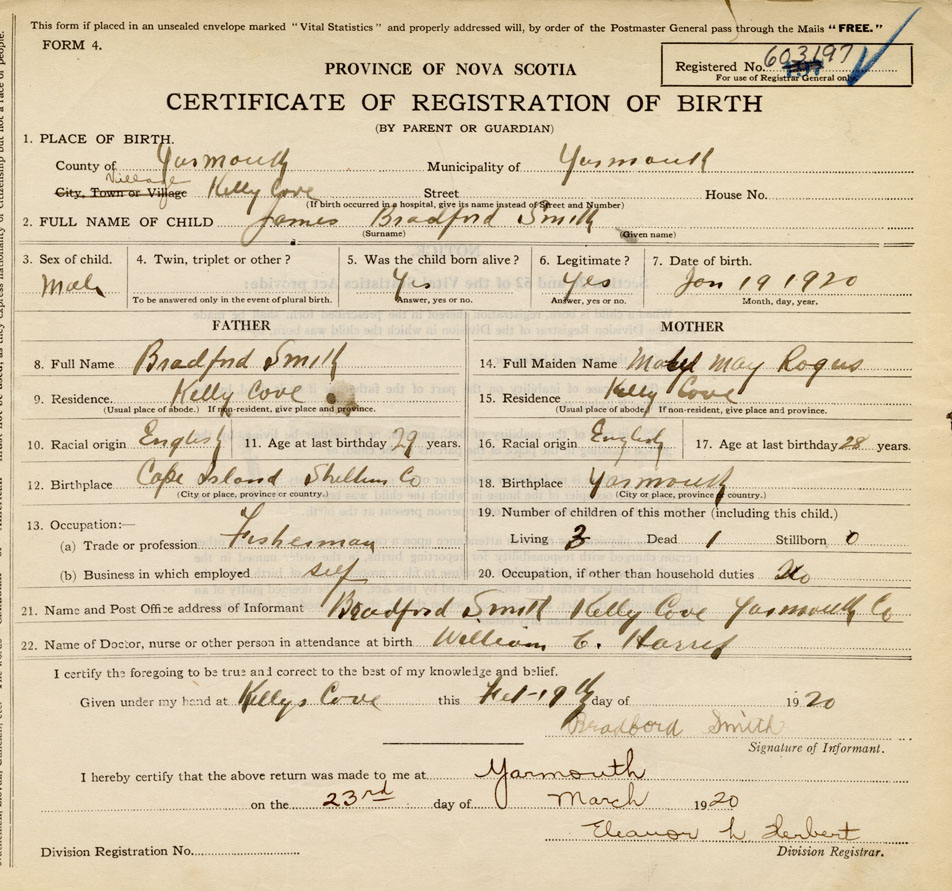 This form if placed in an unsealed envelope marked "Vital Statistics" and properly addressed will, by order of the Postmaster General pass through the Mails "FREE."
FORM 4.
Registered No. 603197
For use of Registrar General only.
PROVINCE OF NOVA SCOTIA
CERTIFICATE OF REGISTRATION OF BIRTH
(BY PARENT OR GUARDIAN)
1. PLACE OF BIRTH.
County of Yarmouth Municipality of Yarmouth
Village
City, Town or Village Kelly Cove Street House No.
(If birth occurred in a hospital, give its name instead of Street and Number)
2. FULL NAME OF CHILD James Bradford Smith
(Surname) (Given name)
3. Sex of child. 4. Twin, triplet or other? 5. Was the child born alive? 6. Legitimate? 7. Date of birth.
Male Yes Yes Jan 19 1920
To be answered only in the event of plural birth. Answer, yes or no. Answer, yes or no. Month, day, year.
FATHER MOTHER
8. Full Name Bradford Smith 14. Full Maiden Name Mabel May Rogers
9. Residence. Kelly Cove 15. Residence Kelly Cove
(Usual place of abode.) If non-resident, give place and province. (Usual place of abode) If non-resident, give place and province.
10. Racial origin English 11. Age at last birthday 29 years. 16. Racial origin English 17. Age at last birthday 28 years.
12. Birthplace Cape Island Shelburn Co 18. Birthplace Yarmouth
(City or place, province or country.) (City or place, province or country.)
13. Occupation:— 19. Number of children of this mother (including this child.)
(a) Trade or profession Fisherman Living 3 Dead 1 Stillborn 0
(b) Business in which employed self 20. Occupation, if other than household duties
21. Name and Post Office address of Informant Bradford Smith Kelly Cove Yarmouth Co
22. Name of Doctor, nurse or other person in attendance at birth William C. Harris
I certify the foregoing to be true and correct to the best of my knowledge and belief.
Given under my hand at Kellys Cove this Feb-19th day of 1920
Bradbord Smith
Signature of Informant.
I hereby certify that the above return was made to me at Yarmouth
on the 23rd day of March 1920
Eleanor L Herbert
Division Registration No. Division Registrar.